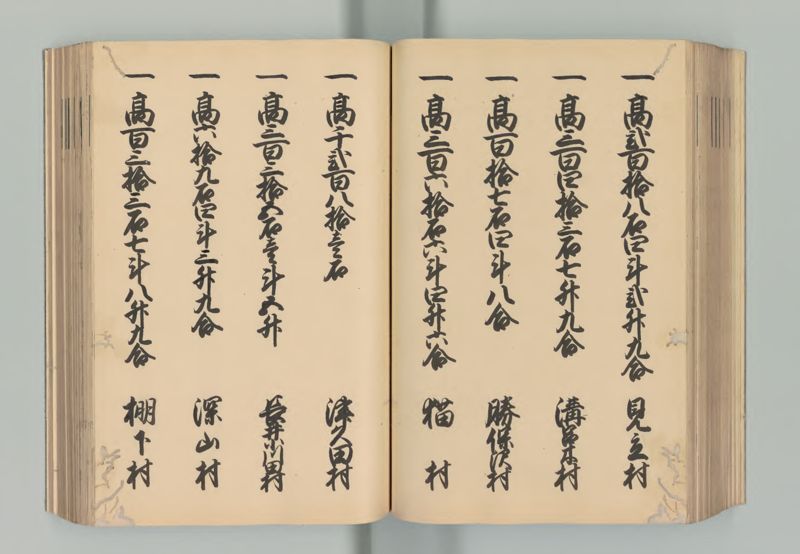 一 高弐百拾八石四斗弐升九合 見立村
一 高三百四拾三石七升九合 溝呂木村
一 高百拾七石四斗八合 勝保沢村
一 高三百六拾石六斗四升六合 猫村
一 高千弐百八拾壱石 津久田村
一 高三百三拾五石壱斗五升 長井小川田村
一 高六拾九石四斗三升九合 深山村
一 高百三拾三石七斗八升九合 棚下村